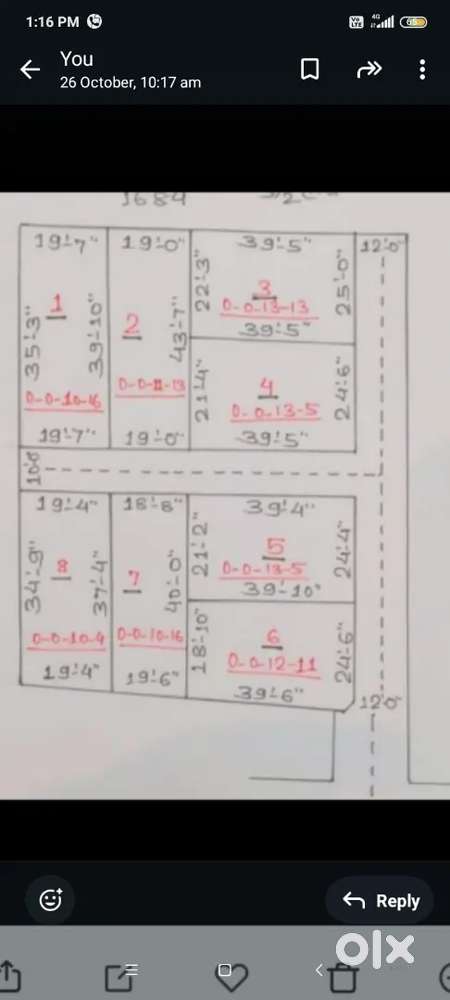 1:16 PM
4G
Vo LTE
65
You
26 October, 10:17 am
1684
19'-7" 19'-0" 39'-5" 12'0"
35'-3" 1 39'-10" 2 43'-7" 22'-3" 3 25'-0"
0-0-13-13
39'-5"
0-0-10-16 0-0-11-13 21'-4" 4 24'-6"
0-0-13-5
19'-7" 19'-0" 39'-5"
10'0"
19'-4" 18'-8" 39'-4"
34'-9" 8 37'-4" 7 40'-0" 21'-2" 5 24'-4"
0-0-13-5
39'-10"
0-0-10-9 0-0-10-16 18'-10" 6 24'-6"
0-0-12-11
19'-4" 19'-6" 39'-6" 12'0"
Reply
olx